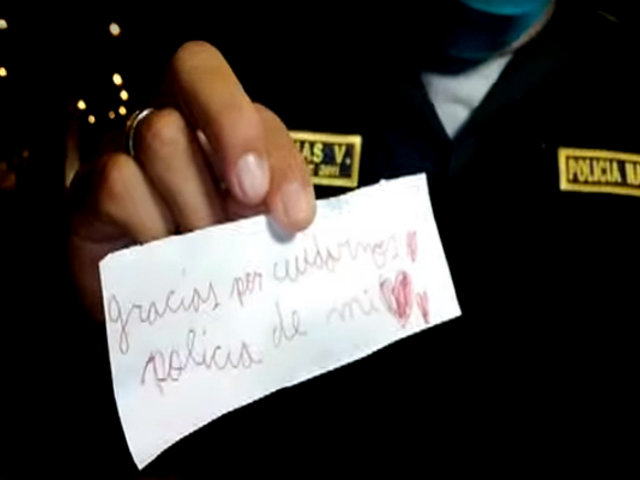 AS V.
2011
POLICIA NA
gracias por cuidarnos
policia de mi